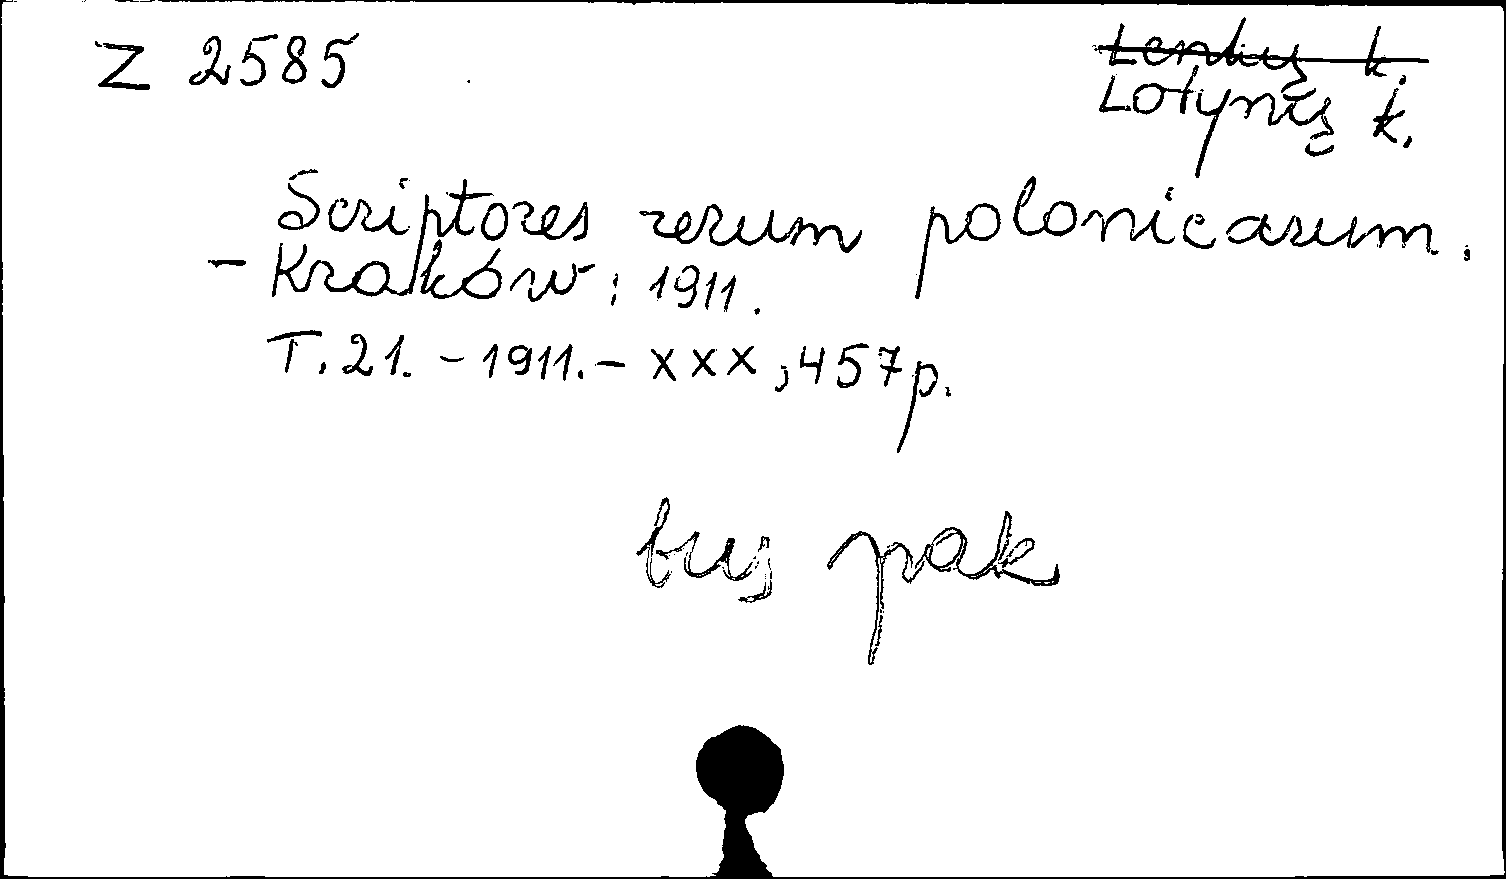 Z 2585
Lenkų k.
Lotynų k.
Scriptores rerum polonicarum.
- Kraków, 1911.
T. 21. - 1911. - XXX, 457 p.
bus pak